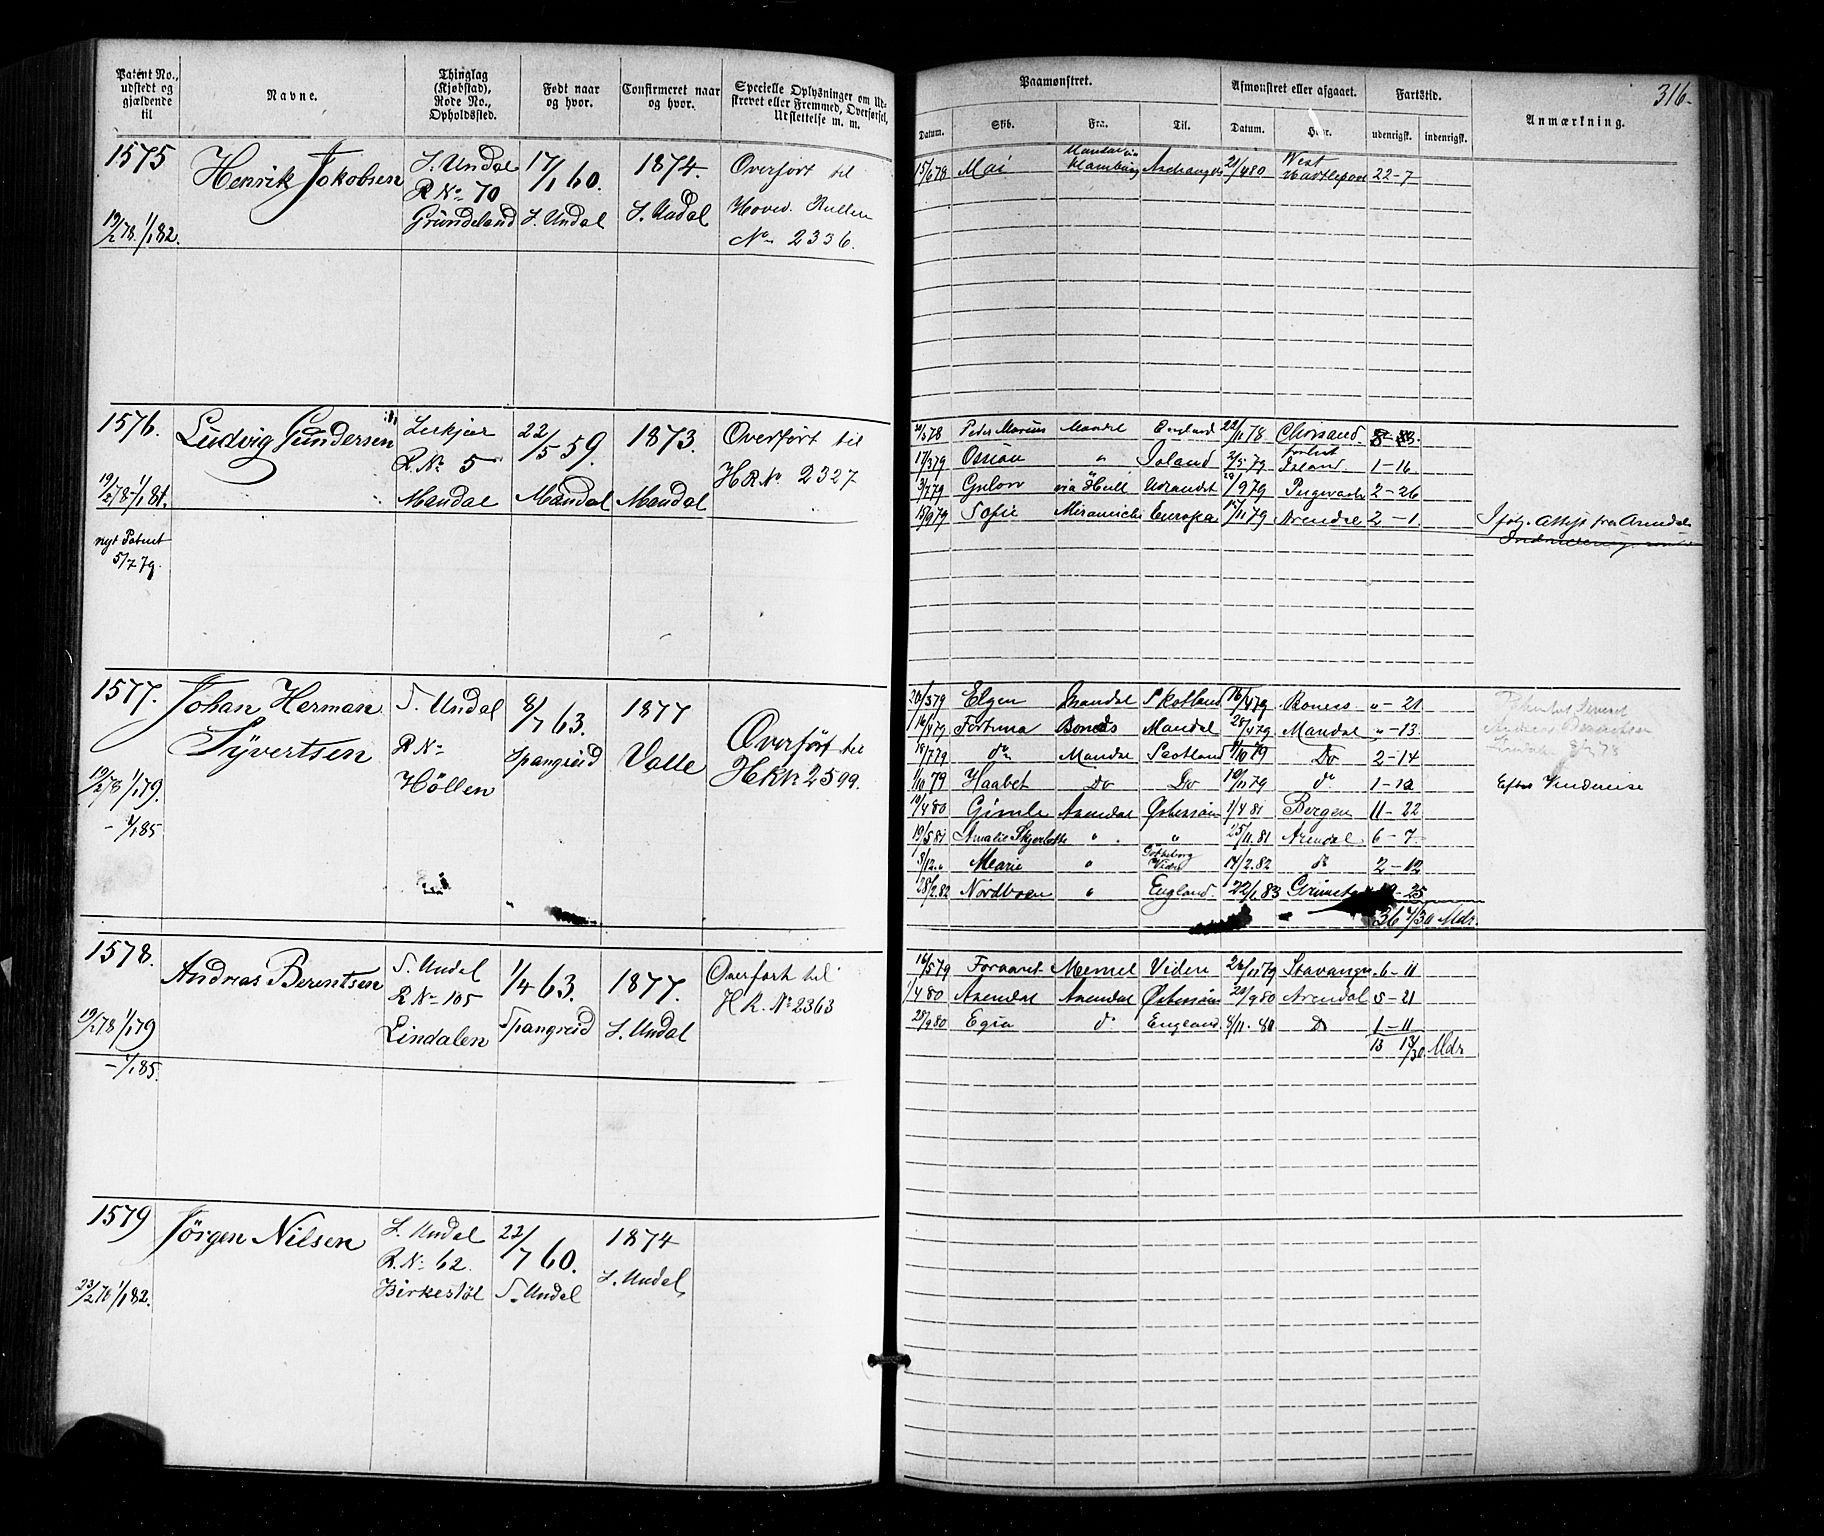 316.
Patent No., udstedt og gjældende til
Navne.
Thinglag (Kjøbstad), Rode No., Opholdssted.
Født naar og hvor.
Confirmeret naar og hvor.
Specielle Oplysninger om Udskrevet eller Fremmed, Overførsel, Udslettelse m. m.
Paamønstret.
Afmønstret eller afgaaet.
Fartstid.
Anmærkning.
Datum. Skib. Fra. Til. Datum. Hvor. udenrigsk. indenrigsk.
1575
Henrik Jakobsen
S. Undal
R No 70
Grundeland
17/1 60.
S. Undal
1874.
S. Undal
Overført til
Hoved Rullen
No 2336.
19/2 78. 1/1 82.
15/6 78 Mai Mandal via Hamburg 21/4 80 West Hartlepool 22-7
1576.
Ludvig Gundersen
R. No 5
Mandal
22/5 59.
Mandal
1873.
Mandal
Overført til
HR No 2327
19/2 78 1/1 81.
nyt Patent
5/7 79.
Peter Marius Mandal England 22/11 78 Chrsand.
17/3 79 Ossian " Island 2/5 79 forlist Island 1-16
3/7 79 via Hull 2-26
15/9 79 Sofie Miramichi Europa 17/11 79 Arendal 2-1
Ifølg. Attest fra Arendal
1577.
Johan Herman
Syvertsen
S. Undal
R No
Höllen
8/7 63.
Spangreid
1877
Valle
Overført til
HRN 2599.
19/2 78 1/1 79.
- 1/1 85.
26/3 79 Elgen Mandal Skotland 16/4 79 Boness "-21
16/4 79 Fortuna Boness Mandal 28/4 79 Mandal "-13
18/7 79 do Mandal Scotland /10 79 Do 2-14
1/10 79 Haabet Do Do 10/11 79 do 1-12
Efter Vindereise
10/4 80 Gimle Arendal Østersøen 1/4 81 Bergen 11-22
19/5 81 Amalie Skjerbotte " " 25/11 81 Arendal 6-7
8/12 " Marie " Gøtheborg Viden 17/2.82 do 2-12
28/2.82 Nordboen " England. 22/1 83 -25
36 4/30 Mdr.
1578.
Andreas Berentsen
S. Undal
R No 105
Lindalen
1/4 63.
Spangreid
1877.
S. Undal
Overført til
HR. No 2363
19/2 78 1/1 79
- 1/1 85.
16/5 79 Forsøret Memel Viden 26/11 79 Stavanger 6-11
1/4 80 Arendal Arendal Østersøen 20/9 80 Arendal 5-21
28/9 80 Egia do England 8/11. 80 Do 1-11
13 13/30 Mdr
1579
Jörgen Nilsen
S. Undal
R. No 62.
Birkestöl
22/7 60.
S. Undal
1874
S. Undal,
23/2 78 1/1 82.